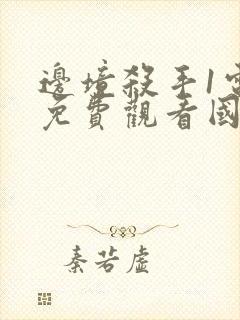 邊境殺手1電
免費觀看國
秦若虛